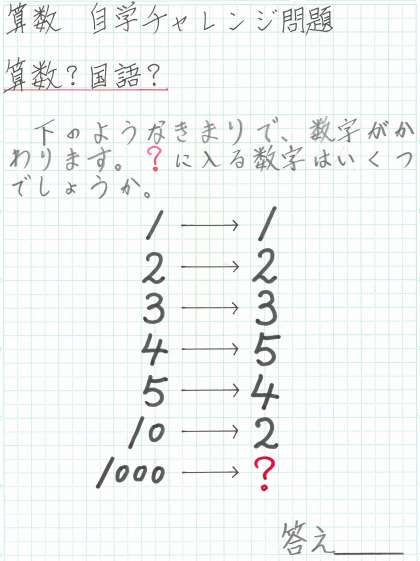 算数 自学チャレンジ問題
算数?国語?
下のようなきまりで、数字がか
わります。?に入る数字はいくつ
でしょうか。
1 → 1
2 → 2
3 → 3
4 → 5
5 → 4
10 → 2
1000 → ?
答え